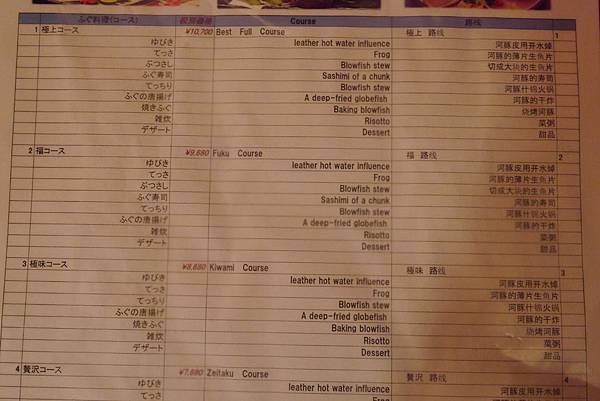 ふぐ料理(コース) 税別価格 Course 路线
1 極上コース ¥10,700 Best Full Course 極上 路线 1
ゆびき leather hot water influence 河豚皮用开水焯
てっさ Frog 河豚的薄片生鱼片
ぶつさし Blowfish stew 切成大块的生鱼片
ふぐ寿司 Sashimi of a chunk 河豚的寿司
てっちり Blowfish stew 河豚什锦火锅
ふぐの唐揚げ A deep-fried globefish 河豚的干炸
焼きふぐ Baking blowfish 烧烤河豚
雑炊 Risotto 菜粥
デザート Dessert 甜品
2 福コース ¥9,680 Fuku Course 福 路线 2
ゆびき leather hot water influence 河豚皮用开水焯
てっさ Frog 河豚的薄片生鱼片
ぶつさし Blowfish stew 切成大块的生鱼片
ふぐ寿司 Sashimi of a chunk 河豚的寿司
てっちり Blowfish stew 河豚什锦火锅
ふぐの唐揚げ A deep-fried globefish 河豚的干炸
雑炊 Risotto 菜粥
デザート Dessert 甜品
3 極味コース ¥8,880 Kiwami Course 極味 路线 3
ゆびき leather hot water influence 河豚皮用开水焯
てっさ Frog 河豚的薄片生鱼片
てっちり Blowfish stew 河豚什锦火锅
ふぐの唐揚げ A deep-fried globefish 河豚的干炸
焼きふぐ Baking blowfish 烧烤河豚
雑炊 Risotto 菜粥
デザート Dessert 甜品
4 贅沢コース ¥7,880 Zeitaku Course 贅沢 路线 4
ゆびき leather hot water influence 河豚皮用开水焯
てっさ Frog 河豚的薄片生鱼片